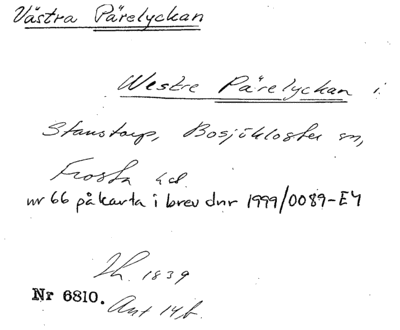 Västra Pärelyckan
Westre Pärelyckan i
Stanstorp, Bosjökloster sn,
Frosta hd
nr 66 på karta i brev dnr 1999/0089-EY
Lh. 1839
Nr 6810. Ant 14 f.